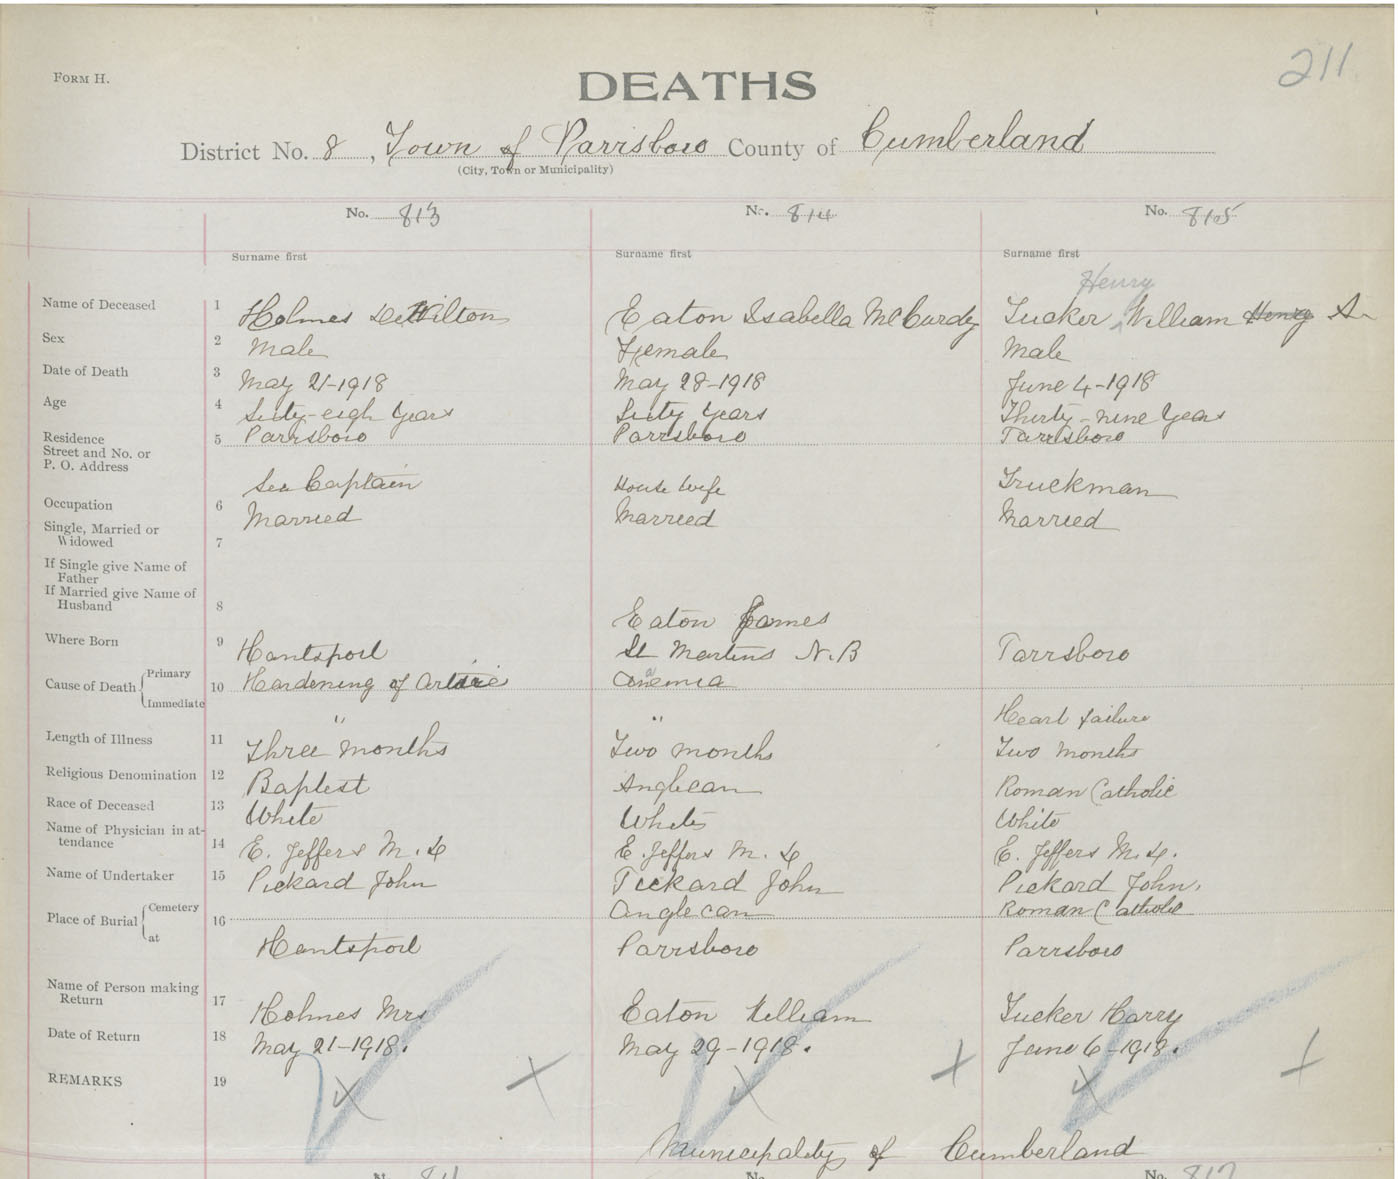 211
FORM H.
DEATHS
District No. 8, Town of Parrsboro County of Cumberland
(City, Town or Municipality)
No. 813 No. 814 No. 815
Surname first Surname first Surname first
Henry
Name of Deceased 1 Holmes DeWilton Eaton Isabella McCurdy Tucker, William Henry
Sex 2 Male Female Male
Date of Death 3 May 21-1918 May 28-1918 June 4-1918
Age 4 Sixty-eigh Years Sixty Years Thirty-nine Years
Residence 5 Parrsboro Parrsboro Parrsboro
Street and No. or
P. O. Address
Sea Captain House Wife Truckman
Occupation 6 Married Married Married
Single, Married or
Widowed 7
If Single give Name of
Father
If Married give Name of
Husband 8
Eaton James
Where Born 9 Hantsport St Martins N.B Parrsboro
Cause of Death Primary 10 Hardening of Anemia
Immediate
" " Heart failure
Length of Illness 11 Three months Two months Two months
Religious Denomination 12 Baptist Anglican Roman Catholic
Race of Deceased 13 White White White
Name of Physician in at-
tendance 14 E. Jeffers M.D E. Jeffers M.D E. Jeffers M.D.
Name of Undertaker 15 Pickard John Pickard John Pickard John.
Place of Burial Cemetery 16 Anglican Roman Catholic
at Hantsport Parrsboro Parrsboro
Name of Person making
Return 17 Holmes Mrs Eaton William Tucker Harry
Date of Return 18 May 21-1918. May 29-1918. June 6-1918.
REMARKS 19 x + x + x +
Municipality of Cumberland
No. No. No. 817